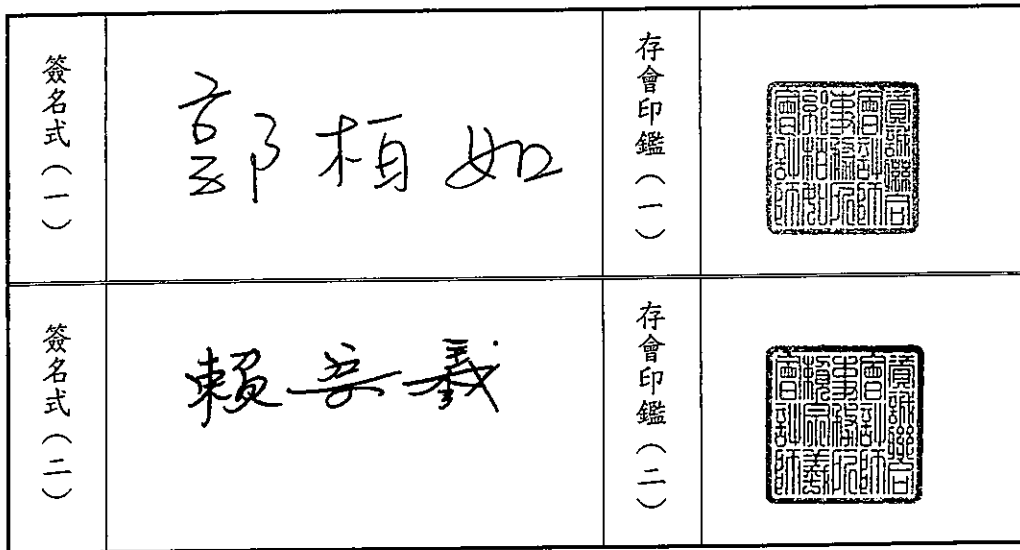 簽名式(一)
郭柏如
存會印鑑(一)
資誠聯合
會計師
事務所
郭柏如
會計師
簽名式(二)
賴宗羲
存會印鑑(二)
資誠聯合
會計師
事務所
賴宗羲
會計師